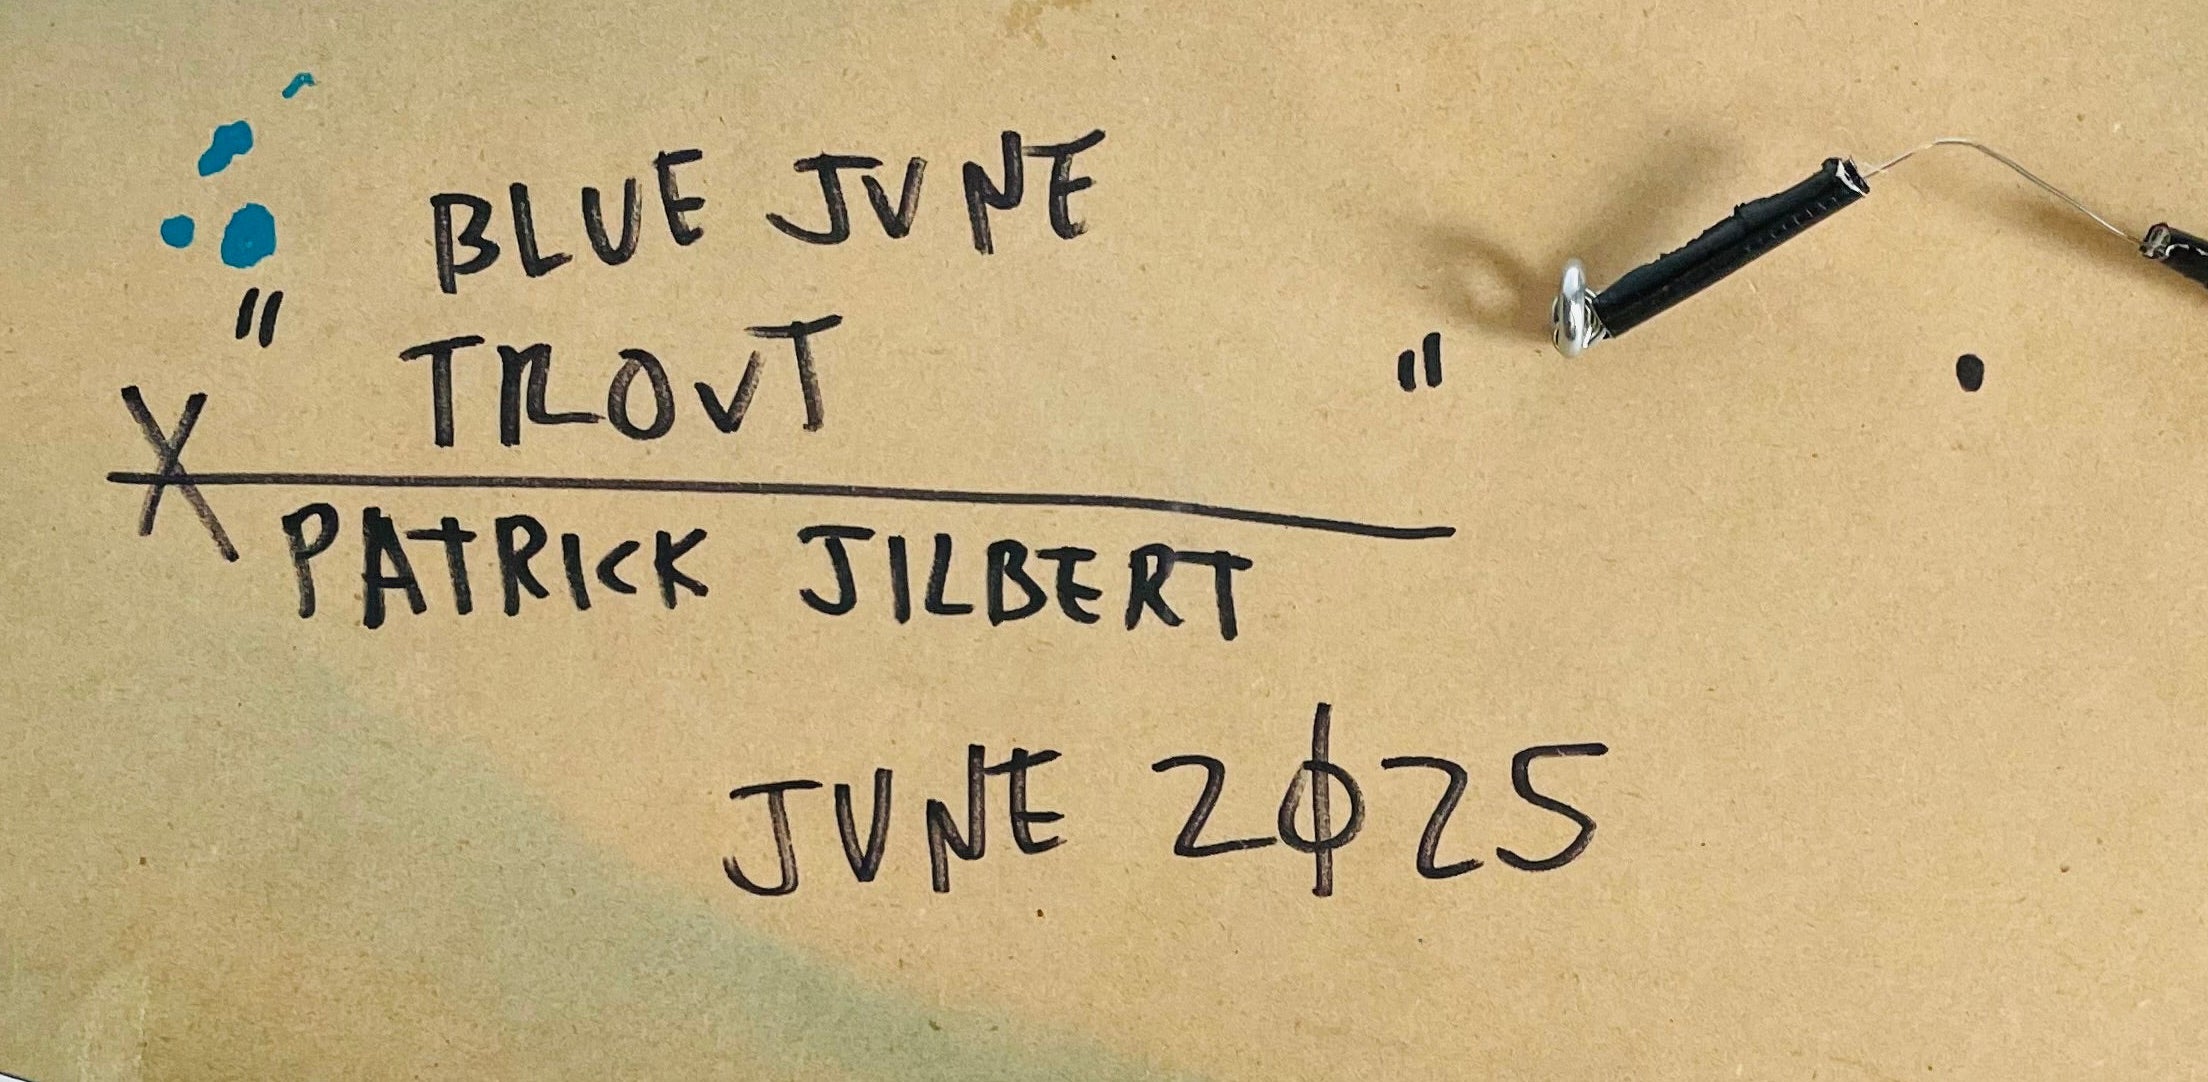 BLUE JUNE
" TROUT "
X
PATRICK JILBERT
JUNE 2025